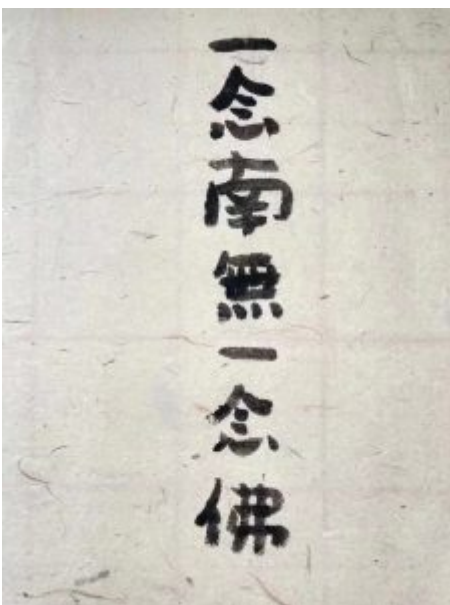 一念南無一念佛